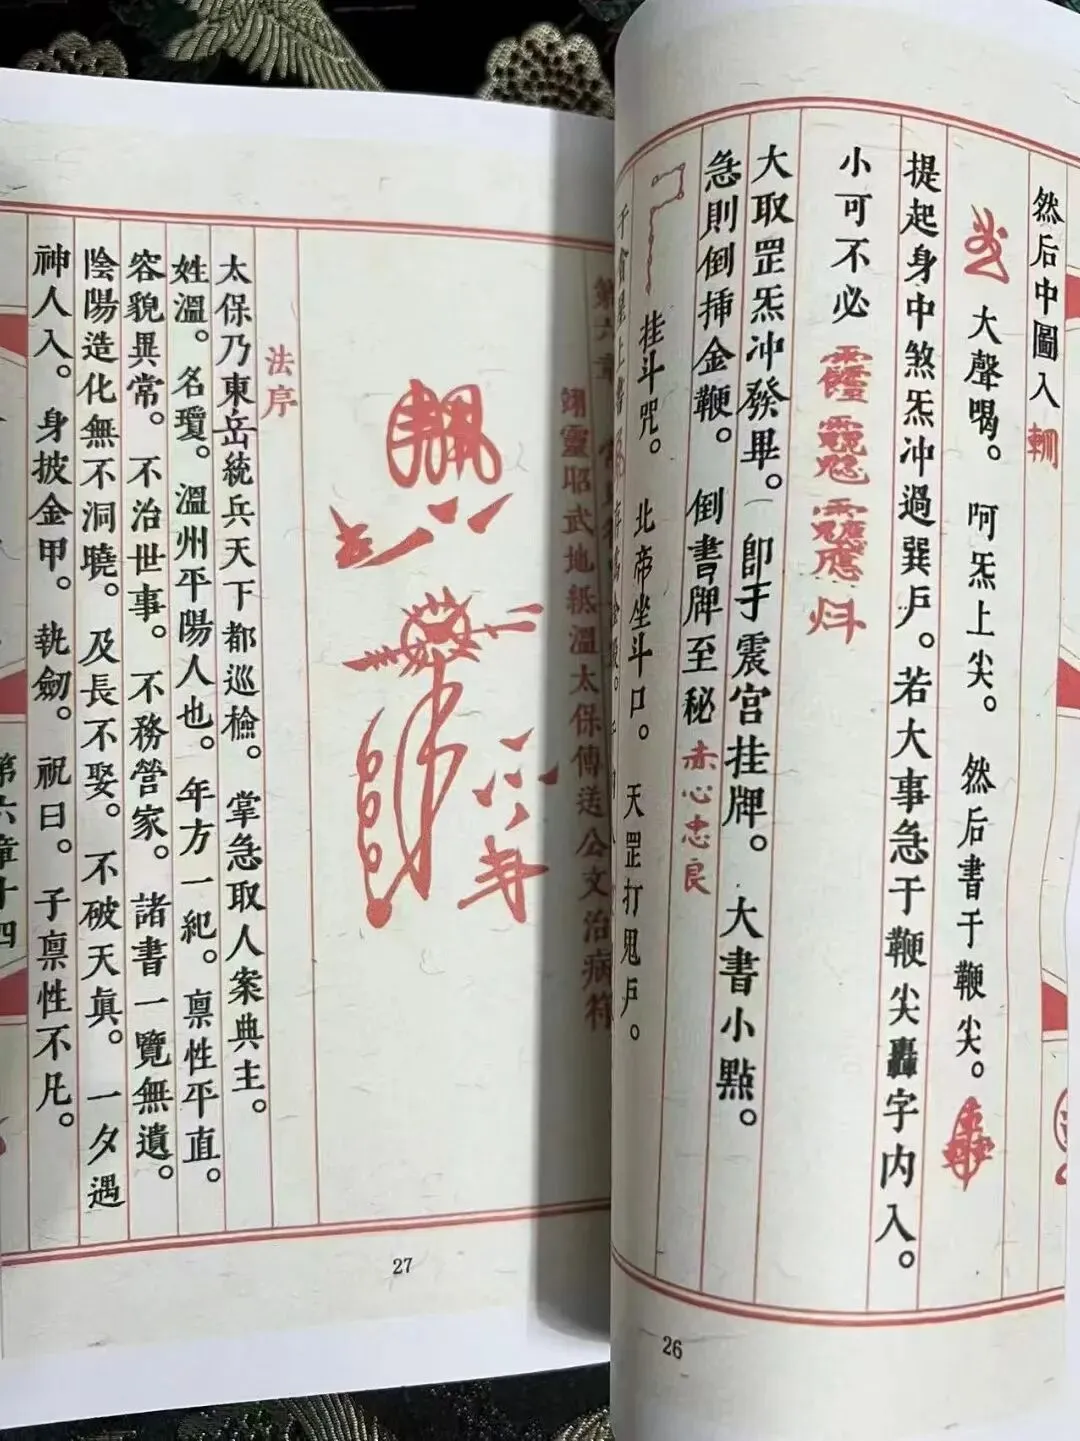 然后中圖入
大聲喝。 呵炁上尖。 然后書于鞭尖。
提起身中煞炁冲過巽戶。若大事急于鞭尖轟字内入。
小可不必
大取罡炁冲發畢。即手震宮挂牌。 大書小點。
急則倒挿金鞭。 倒書牌至秘 赤心忠良
挂斗咒。 北帝坐斗口。 天罡打鬼戶。
26
翊靈昭武地祇溫太保傳送公文治病符
法序
太保乃東岳統兵天下都巡檢。掌急取人案典主。
姓溫。名瓊。溫州平陽人也。年方一紀。稟性平直。
容貌異常。不治世事。不務營家。諸書一覽無遺。
陰陽造化無不洞曉。及長不娶。不破天眞。一夕遇
神人入。身披金甲。執劒。祝曰。子稟性不凡。
第六章十四
27